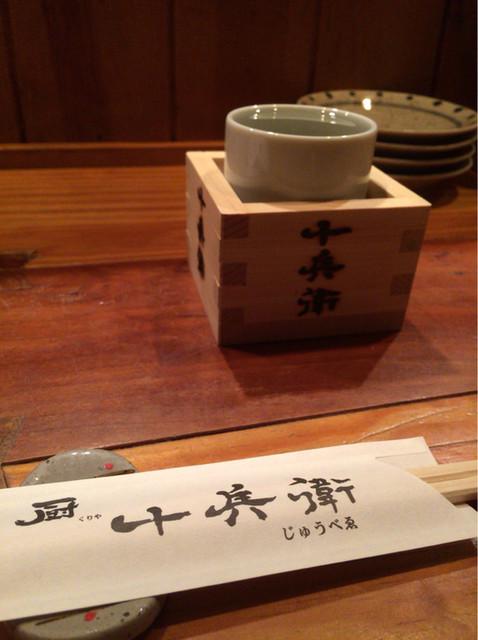 十兵衛
十兵衛
厨 くりや 十兵衛
じゅうべゑ